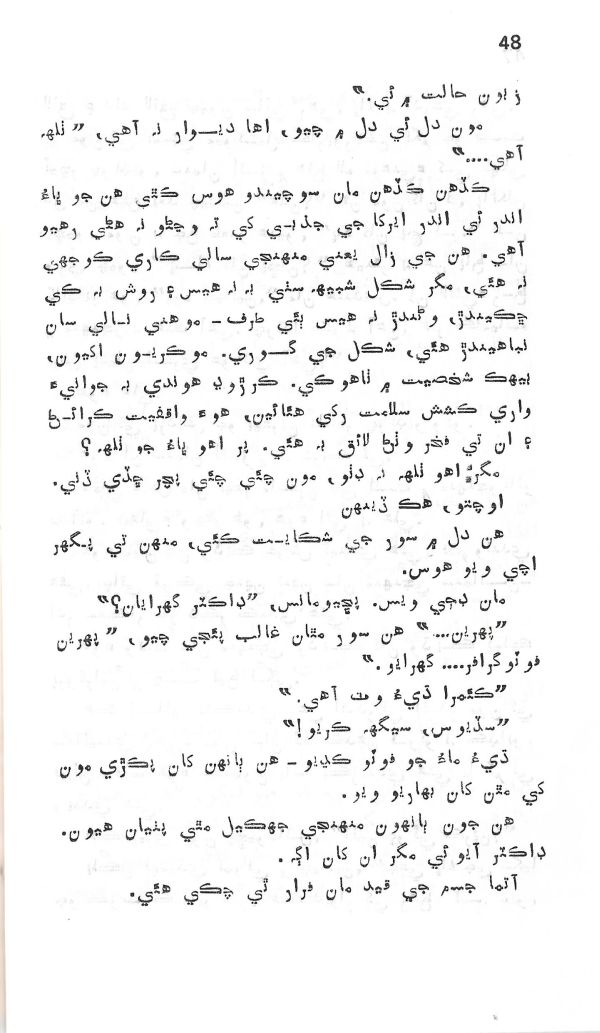 48
زبون حالت ۾ ئي.”
مون دل ئي دل ۾ چيو، اها ديوار نہ آهي، ”ٺلهہ
آهي....“
ڪڏهن ڪڏهن مان سوچيندو هوس ڪٿي هن جو ڀاءُ
اندر ئي اندر ايرکا جي جذبي کي تہ وڃڻو نہ هڻي رهيو
آهي. هن جي زال يعني منهنجي سالي ڪاري ڪوجهي
نہ هئي، مگر شڪل شبيهہ سٺي بہ نہ هيس ۽ روش بہ ڪي
ڇڪيندڙ، وڻندڙ نہ هيس ٻئي طرف - موهني نالي سان
نباهيندڙ هئي، شڪل جي گوري. موڪريون اکيون،
بيهڪ شخصيت ۾ ٺاهوڪي. ڪرڙوڍ هوندي بہ جوانيءَ
واري ڪشش سلامت رکي هئائين، هوءَ واقفيت ڪرائڻ
۽ ان تي فخر وٺڻ لائق بہ هئي. پر اهو ڀاءُ جو ٺلهہ؟
مگر اهو ٺلهہ نہ ڊٺو، مون چئي چئي پچر ڇڏي ڏني.
اوچتو، هڪ ڏينهن
هن دل ۾ سور جي شڪايت ڪئي، منهن تي پگهر
اچي ويو هوس.
مان ڊڄي ويس. پڇيومانس، ”ڊاڪٽر گهرايان؟“
”پهرين...“ هن سور مٿان غالب پئجي چيو، ”پهرين
فوٽوگرافر.... گهرايو.“
”ڪئمرا ڌيءُ وٽ آهي.“
”سڏيوس، سيگهہ ڪريو!“
ڌيءُ ماءُ جو فوٽو ڪڍيو - هن ٻانهن کان پڪڙي مون
کي مٿن کان بهاريو ويو.
هن جون ٻانهون منهنجي جهڪيل مٿي پٺيان هيون.
ڊاڪٽر آيو ئي مگر ان کان اڳہ.
آتما جسم جي قيد مان فرار ٿي چڪي هئي.